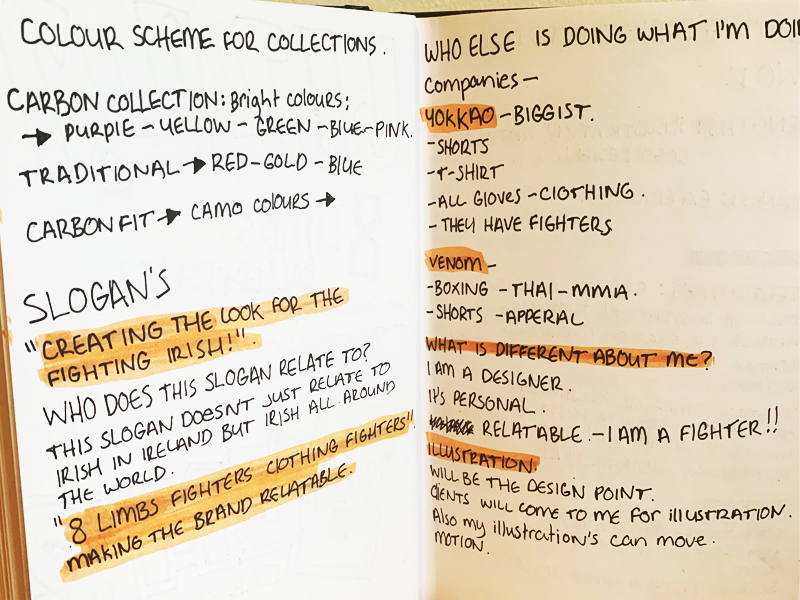 COLOUR SCHEME FOR COLLECTIONS.
CARBON COLLECTION: Bright colours;
→ PURPIE - YELLOW - GREEN - BLUE - PINK.
TRADITIONAL → RED - GOLD - BLUE
CARBON FIT → CAMO COLOURS →
SLOGAN'S
"CREATING THE LOOK FOR THE
FIGHTING IRISH!".
WHO DOES THIS SLOGAN RELATE TO?
THIS SLOGAN DOESNT JUST RELATE TO
IRISH IN IRELAND BUT IRISH ALL AROUND
THE WORLD.
"8 LIMBS FIGHTERS CLOTHING FIGHTERS"
MAKING THE BRAND RELATABLE.
WHO ELSE IS DOING WHAT I'M DOI
Companies -
YOKKAO - BIGGIST.
- SHORTS
- T-SHIRT
- ALL GLOVES - CLOTHING.
- THEY HAVE FIGHTERS
VENOM -
- BOXING - THAI - MMA.
- SHORTS - APPERAL
WHAT IS DIFFERENT ABOUT ME?
I AM A DESIGNER.
It's PERSONAL.
RELATABLE. - I AM A FIGHTER!!
ILLUSTRATION.
WILL BE THE DESIGN POINT.
CLIENTS WILL COME TO ME FOR ILLUSTRATION.
Also my illustration's can move.
MOTION.